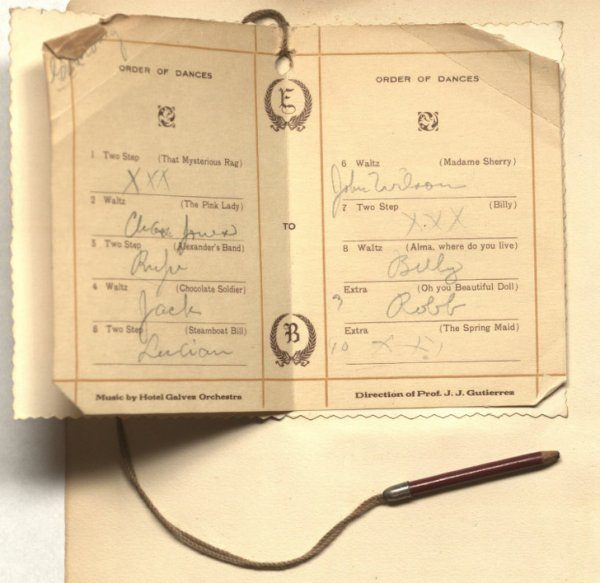 ORDER OF DANCES
1 Two Step (That Mysterious Rag)
XXX
2 Waltz (The Pink Lady)
Jones
3 Two Step (Alexander's Band)
Rufe
4 Waltz (Chocolate Soldier)
Jack
5 Two Step (Steamboat Bill)
Lucian
Music by Hotel Galvez Orchestra
E
TO
B
ORDER OF DANCES
6 Waltz (Madame Sherry)
John Wilson
7 Two Step (Billy)
XXX
8 Waltz (Alma, where do you live)
Billy
Extra (Oh you Beautiful Doll)
9 Robb
Extra (The Spring Maid)
10 XX
Direction of Prof. J. J. Gutierrez